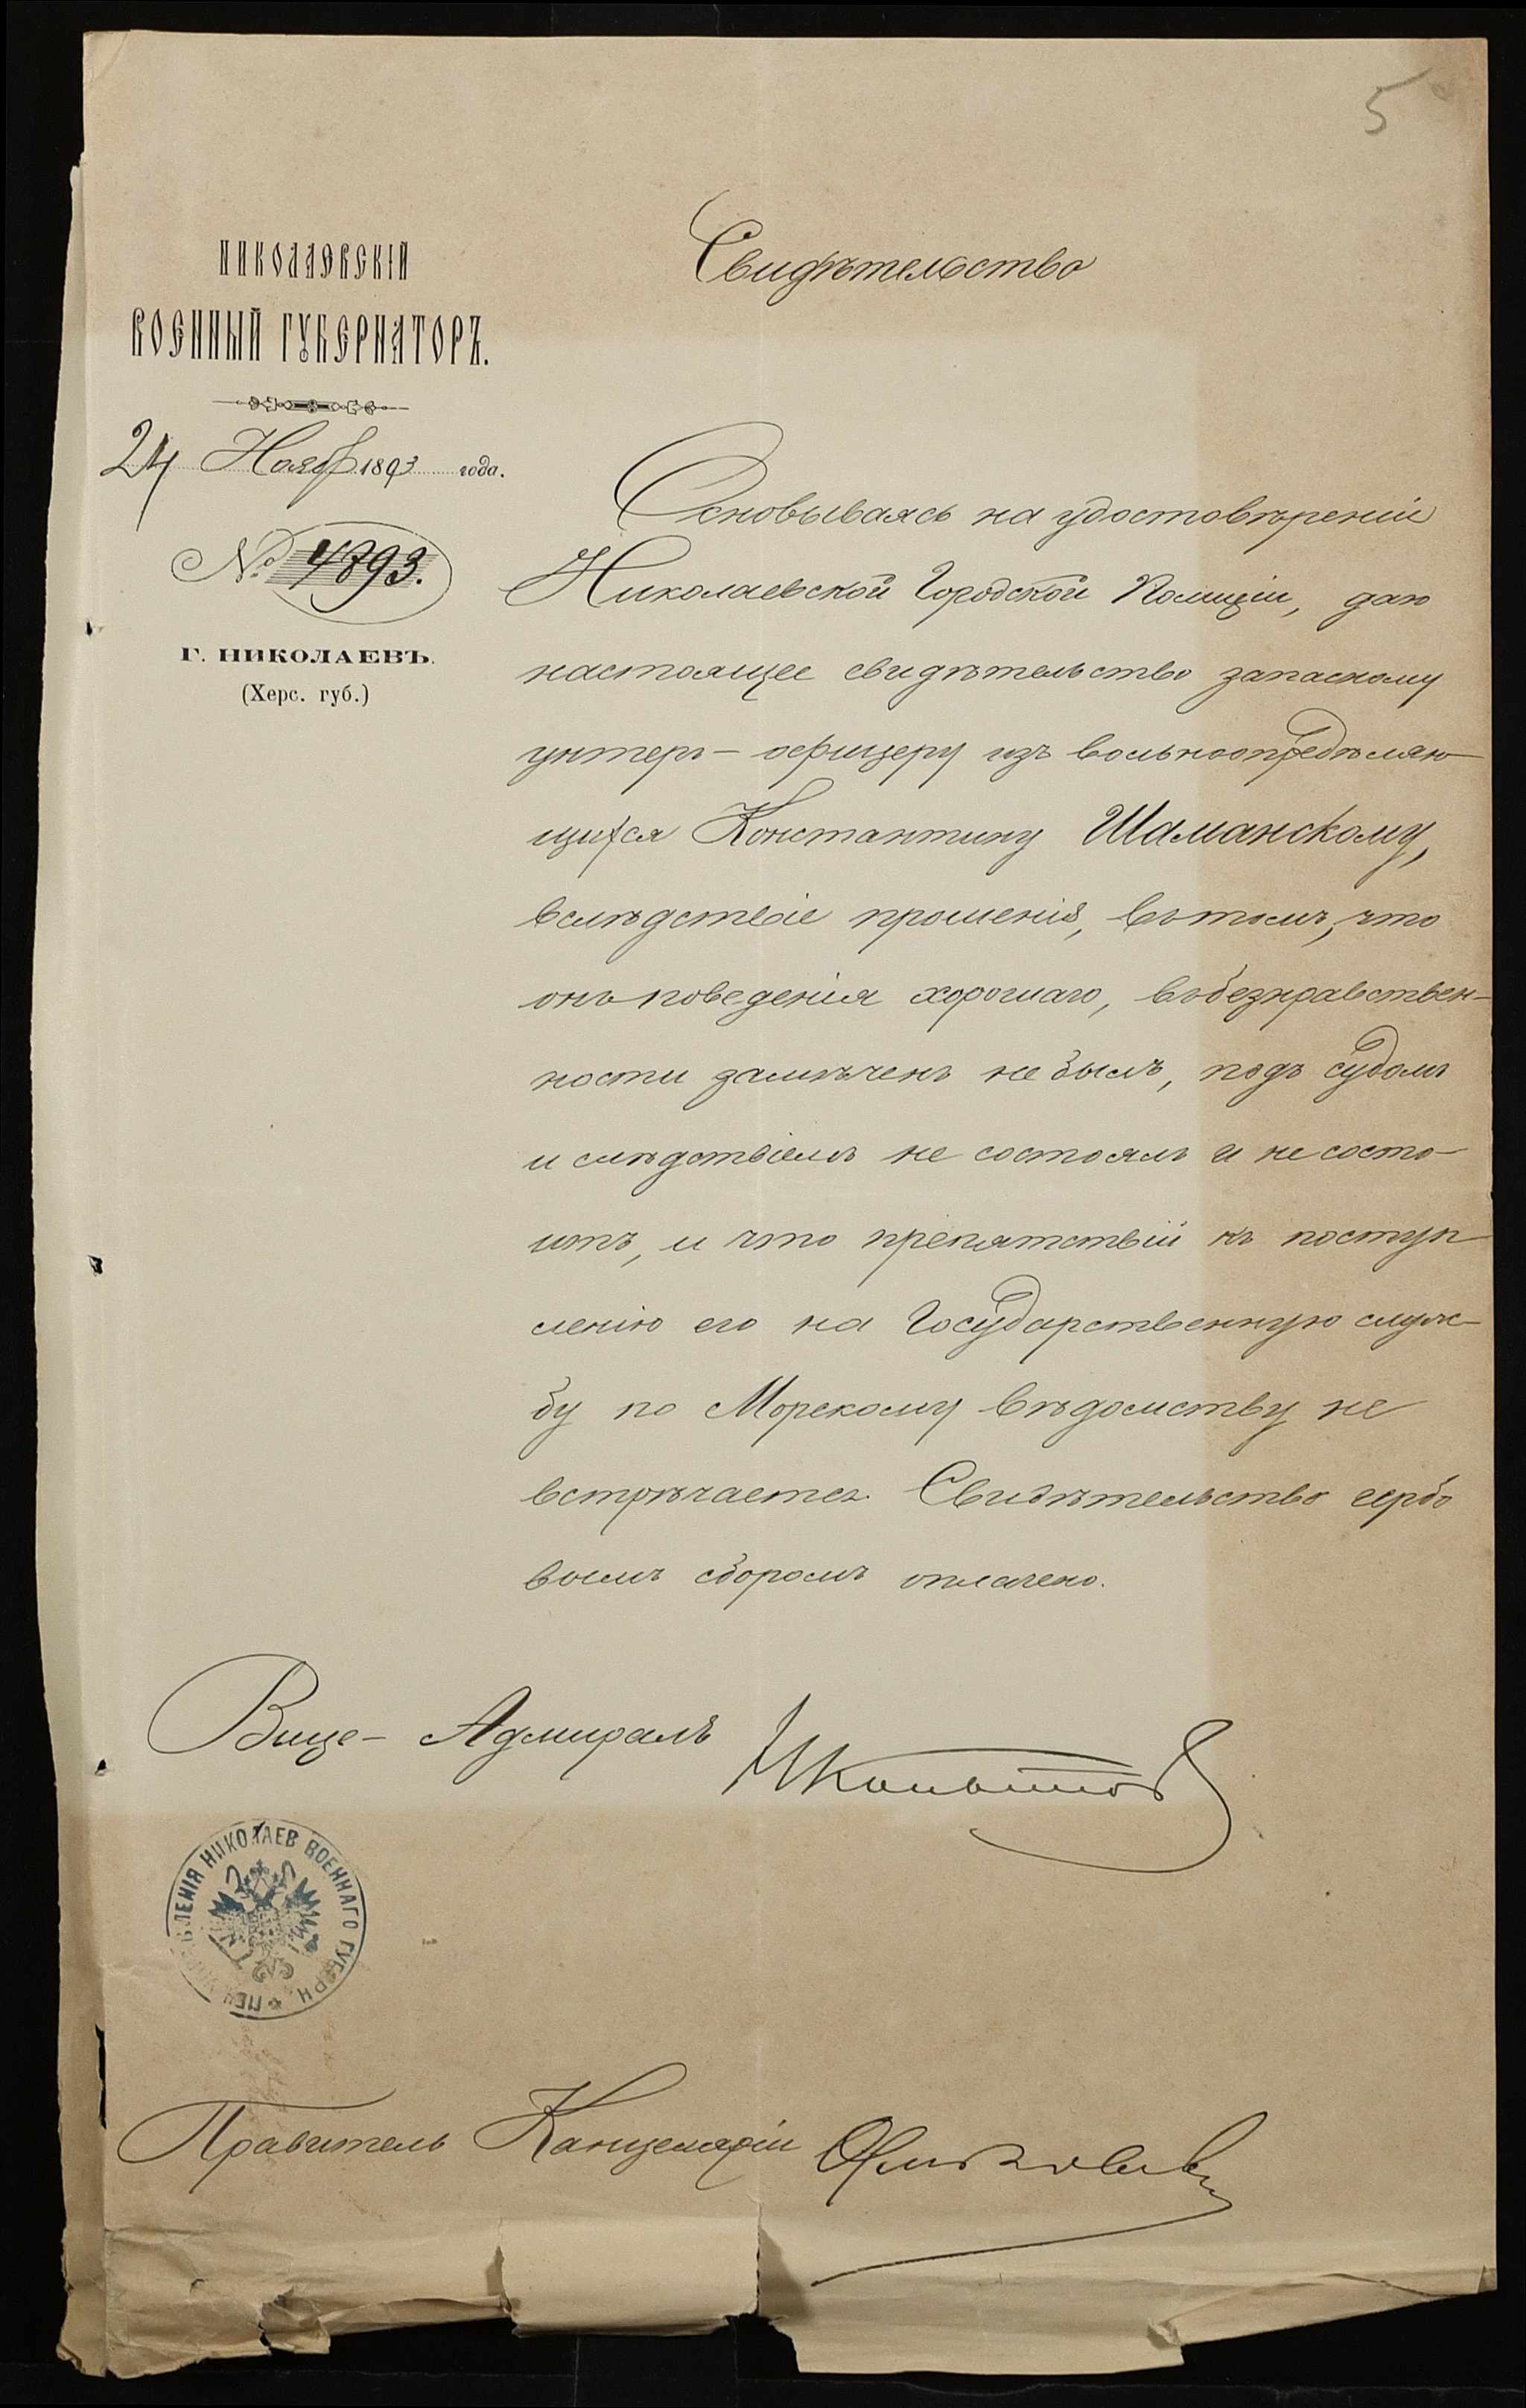 5
НИКОЛАЕВСКІЙ
ВОЕННЫЙ ГУБЕРНАТОРЪ.
24 Нояб. 1893 года.
№ 4893.
Г. НИКОЛАЕВЪ.
(Херс. губ.)
Свидѣтельство
Основываясь на удостовѣреніи
Николаевской Городской Полиціи, даю
настоящее свидѣтельство запасному
унтеръ-офицеру изъ вольноопредѣляю-
щихся Константину Шаманскому,
вслѣдствіе прошенія, въ томъ, что
онъ поведенія хорошаго, въ безнравствен-
ности замѣченъ не былъ, подъ судомъ
и слѣдствіемъ не состоялъ и не состо-
итъ, и что препятствій къ поступ
ленію его на Государственную служ-
бу по Морскому вѣдомству не
встрѣчается. Свидѣтельство гербо
вымъ сборомъ оплачено.
Вице-Адмиралъ
НИКОЛАЕВ ВОЕННАГО ГУБЕРН.
Правитель Канцеляріи